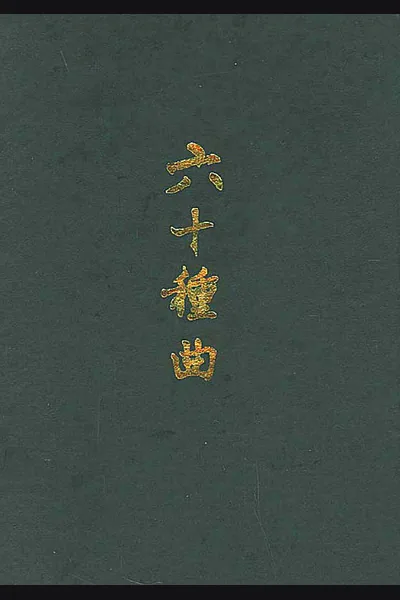 六十種曲